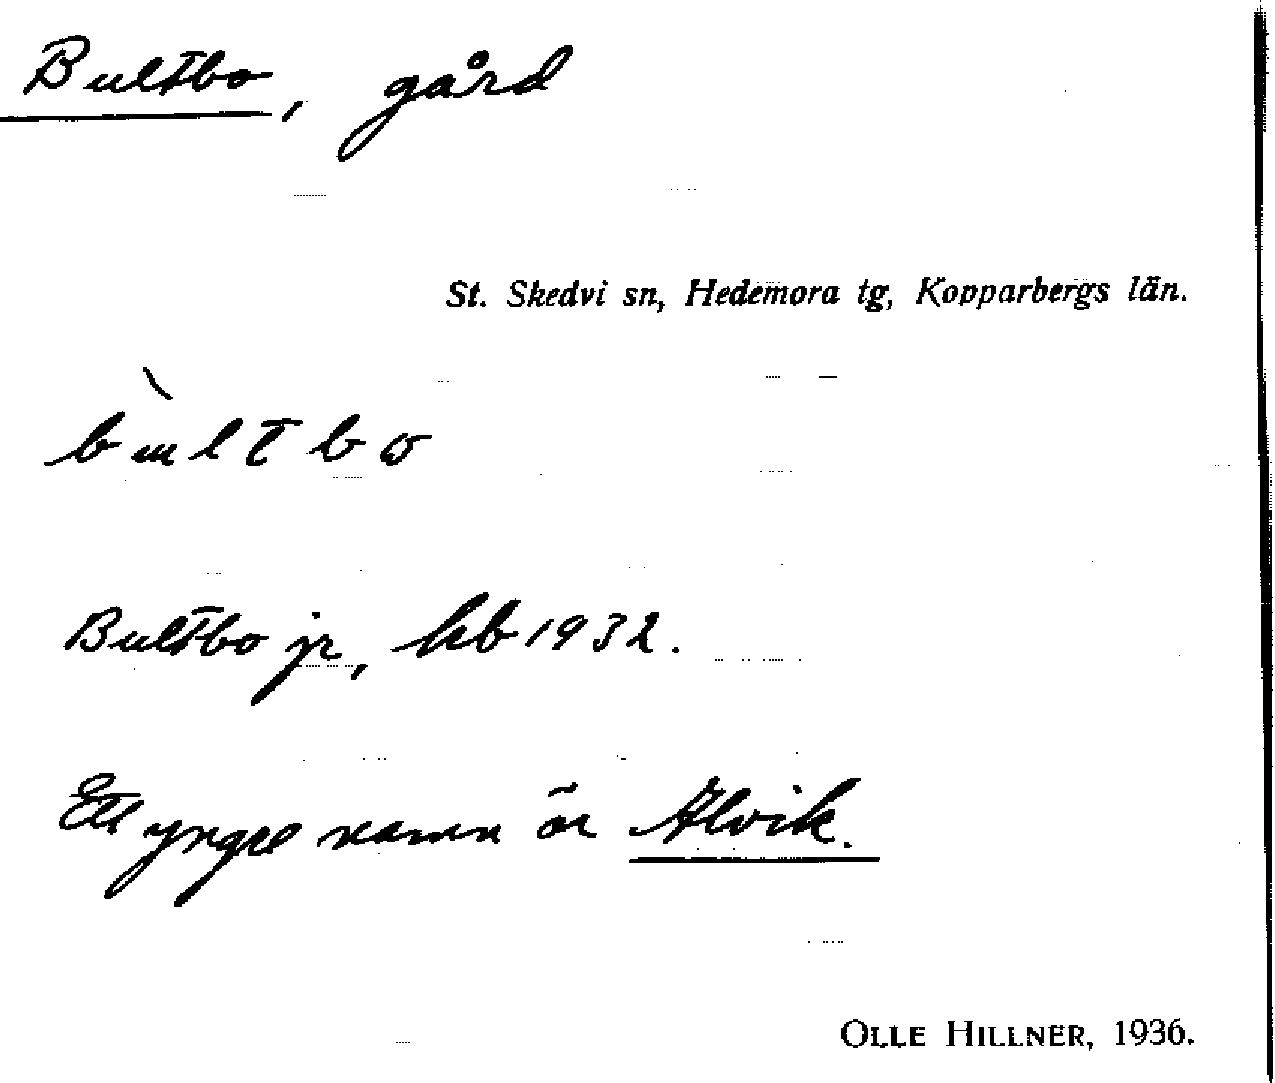 Bultbo, gård
St. Skedvi sn, Hedemora tg, Kopparbergs län.
bùltbo
Bultbo jr, kb 1932.
Ett yngre namn är Alvik.
OLLE HILLNER, 1936.